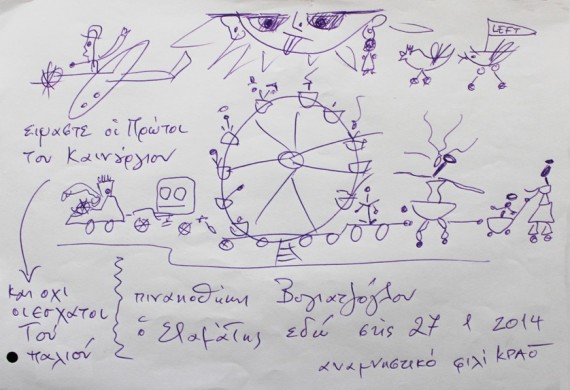 LEFT
είμαστε οἱ Πρῶτοι
του Καινούργιου
και οχι
οι εσχατοι
Του
παλιού
πινακοθήκη Βογιατζόγλου
ὁ Σταμάτης εδώ στις 27 1 2014
αναμνηστικό φιλί ΚΡΑΟ